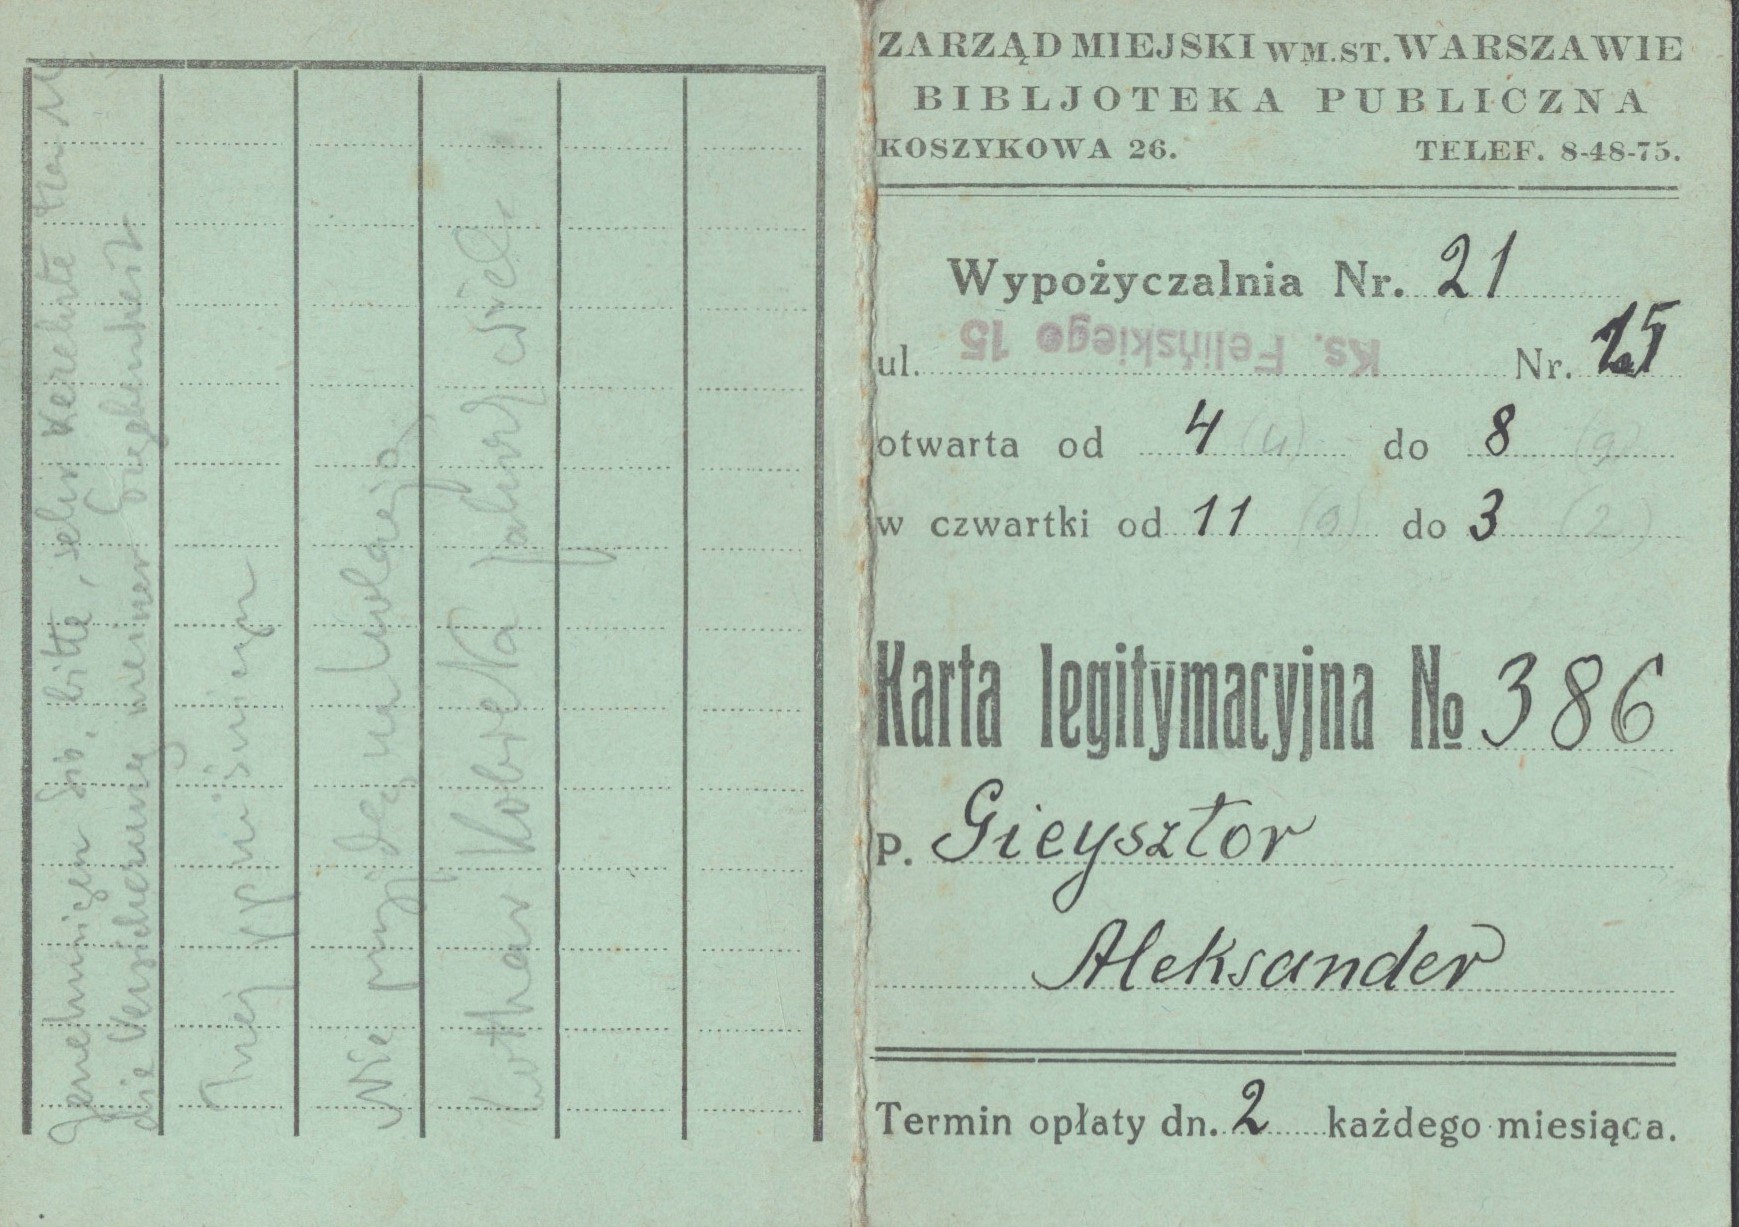 ZARZĄD MIEJSKI W M. ST. WARSZAWIE
BIBLJOTEKA PUBLICZNA
KOSZYKOWA 26. TELEF. 8-48-75.
Wypożyczalnia Nr. 21
ul. Ks. Felińskiego 15 Nr. 15
otwarta od 4 (4) do 8 (9)
w czwartki od 11 (9) do 3 (2)
Karta legitymacyjna No 386
P. Gieysztor
Aleksander
Termin opłaty dn. 2 każdego miesiąca.
Genehmigen Sie, bitte, sehr
die Versicherung meiner Ergebenheit
Nie przyjdę na kolację
Lothar